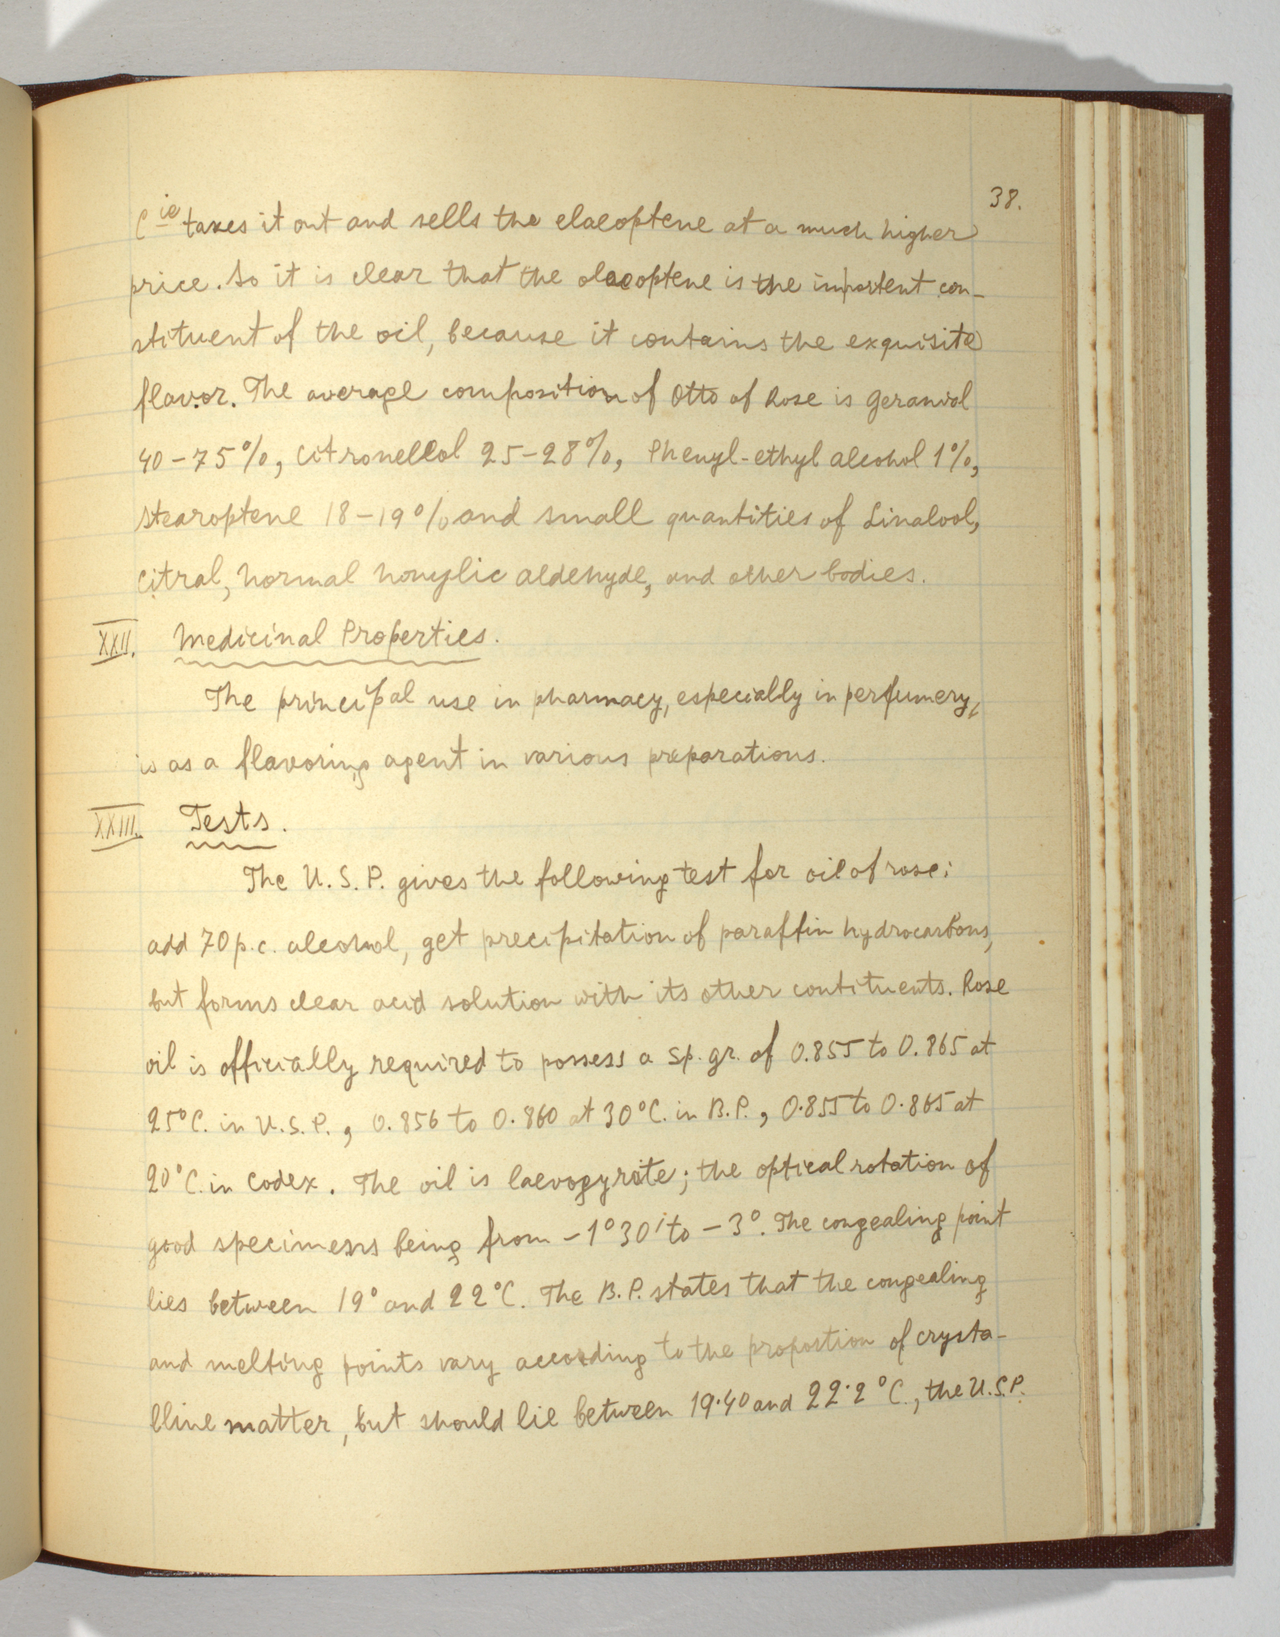 38.
Cie takes it out and sells the elaeoptene at a much higher
price. So it is clear that the olaeoptene is the importent con-
stituent of the oil, because it contains the exquisite
flavor. The average composition of Otto of Rose is Geraniol
40-75%, Citronellol 25-28%, Phenyl-ethyl alcohol 1%,
Stearoptene 18-19% and small quantities of Linalool,
Citral, normal nonylic aldehyde, and other bodies.
XXII. Medicinal Properties.
The principal use in pharmacy, especially in perfumery,
is as a flavoring agent in various preparations.
XXIII. Tests.
The U.S.P. gives the following test for oil of rose:
add 70 p.c. alcohol, get precipitation of paraffin hydrocarbons,
but forms clear acid solution with its other contituents. Rose
oil is officially required to possess a sp. gr. of 0.855 to 0.865 at
25°C. in U.S.P., 0.856 to 0.860 at 30°C. in B.P., 0.855 to 0.865 at
20°C. in Codex. The oil is laevogyrate; the optical rotation of
good specimens being from -1°30' to -3°. The congealing point
lies between 19° and 22°C. The B.P. states that the congealing
and melting points vary according to the proportion of crysta-
lline matter, but should lie between 19.40 and 22.2°C., the U.S.P.